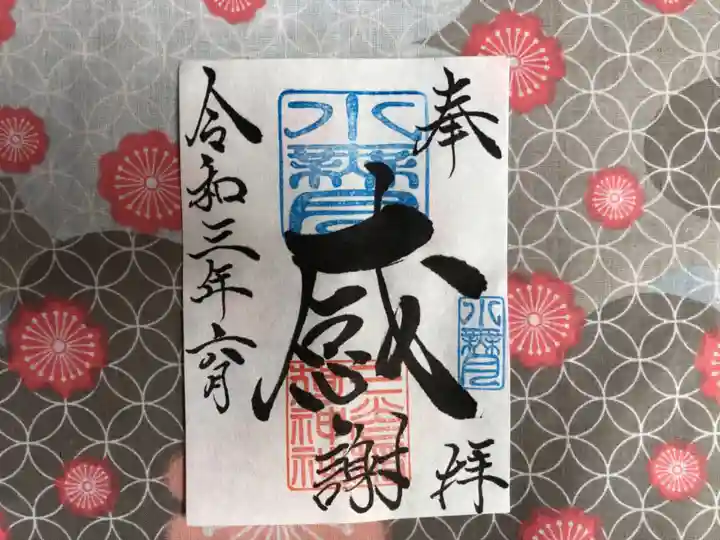 奉拝
感謝
令和三年六月
水無月
水無月